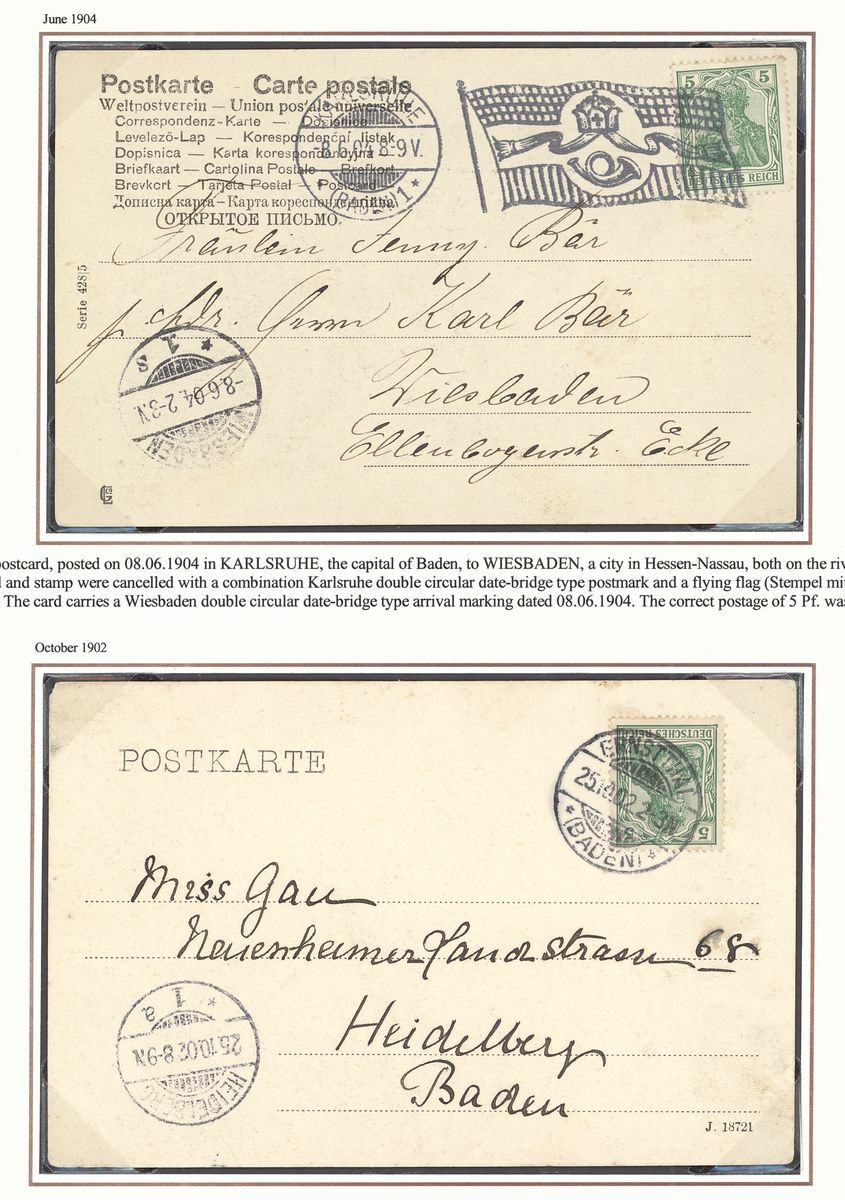 June 1904
Postkarte - Carte postale
Weltpostverein — Union postale universelle
Correspondenz-Karte — Dopisnice
Levelező-Lap — Korespondenční listek
Dopisnica — Karta korespondencyjna
Briefkaart — Cartolina Postale — Brefkort
Brevkort — Tarjeta Postal — Postcard
Дописна карта - Карта кореспондентна
ОТКРЫТОЕ ПИСЬМО.
KARLSRUHE
8.6.04 8-9 V.
* (BADEN) 1 *
5 5
DEUTSCHES REICH
Fräulein Jenny Bär
p. Adr. Herrn Karl Bär
Wiesbaden
Ellenbogenstr. Ecke
Serie 428|5
WIESBADEN
-8.6.04. 2-3N
* 1 s
ostcard, posted on 08.06.1904 in KARLSRUHE, the capital of Baden, to WIESBADEN, a city in Hessen-Nassau, both on the riv
l and stamp were cancelled with a combination Karlsruhe double circular date-bridge type postmark and a flying flag (Stempel mi
The card carries a Wiesbaden double circular date-bridge type arrival marking dated 08.06.1904. The correct postage of 5 Pf. was
October 1902
POSTKARTE
ERNSTTHAL
25.10.02 2-3N
* (BADEN) *
DEUTSCHES REICH
5 5
Miss Gau
Neuenheimer Landstrasse 68
Heidelberg
Baden
HEIDELBERG
25.10.02 8-9N
* 1 a
J. 18721